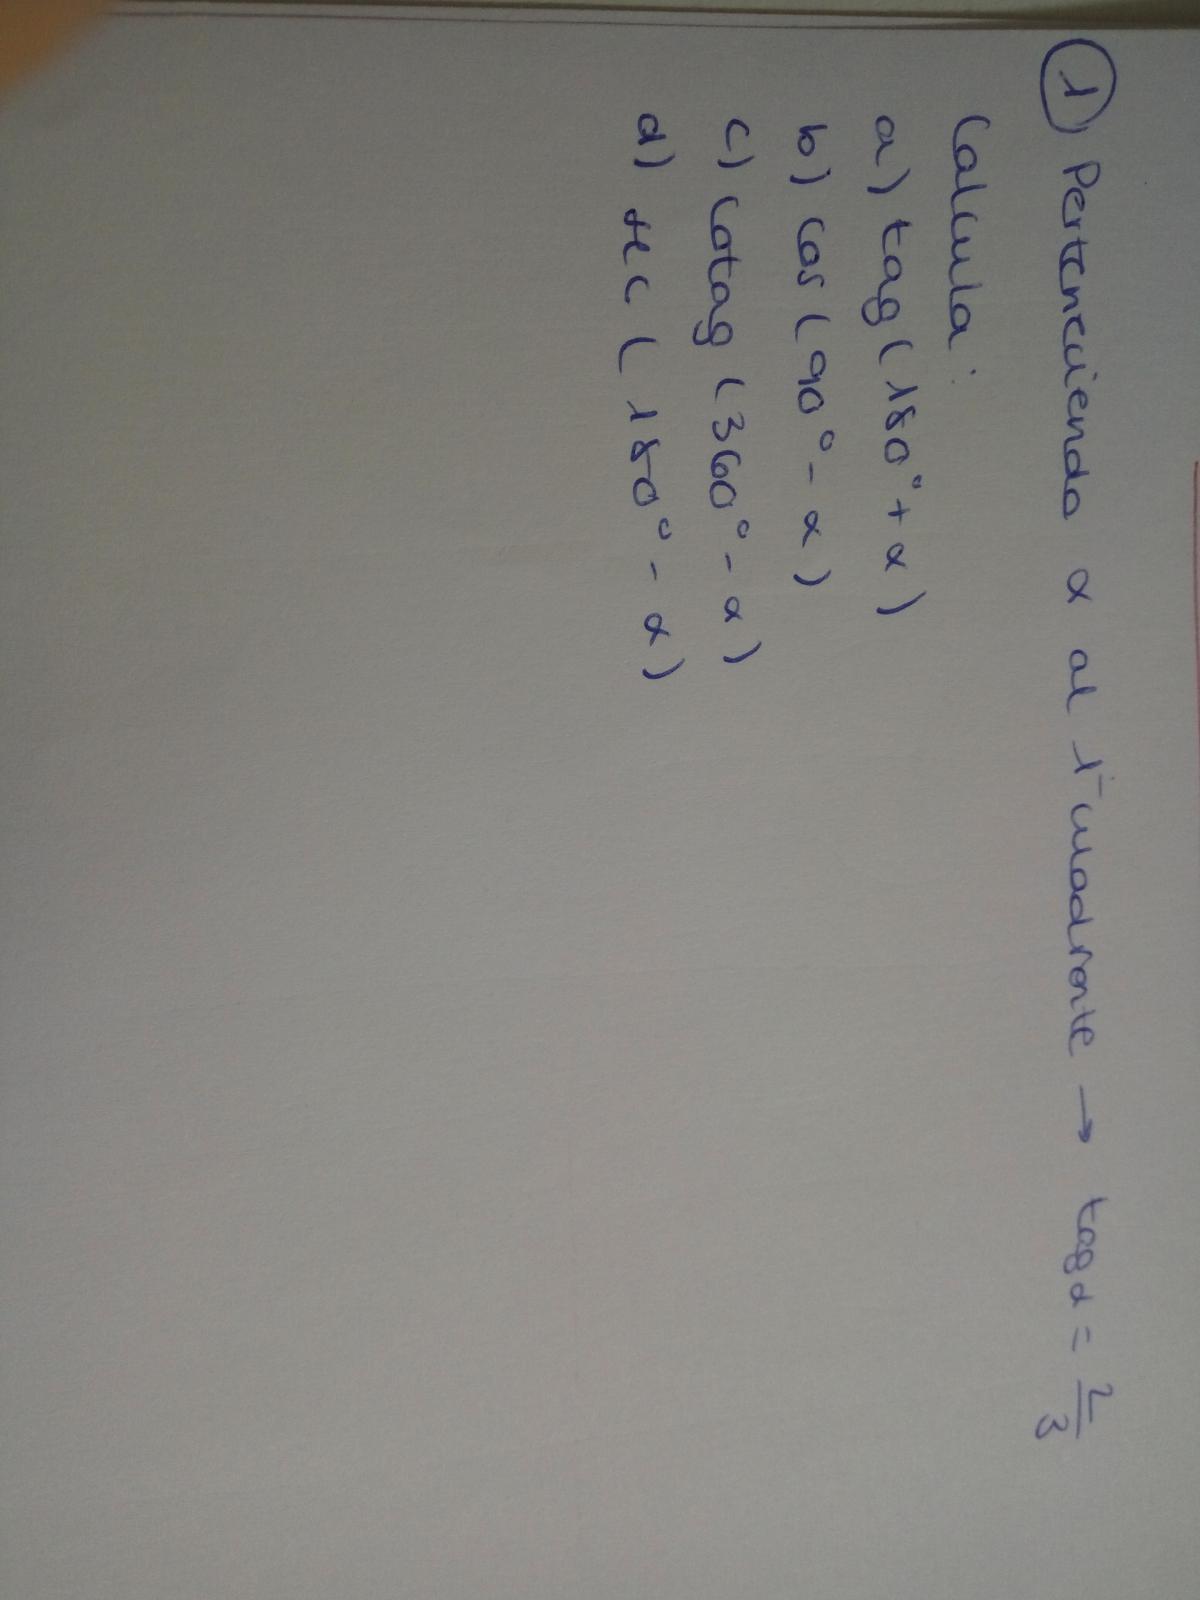 1) Perteneciendo α al 1er cuadrante → tag α = 2/3
Calcula:
a) tag (180° + α)
b) cos (90° - α)
c) cotag (360° - α)
d) sec (180° - α)